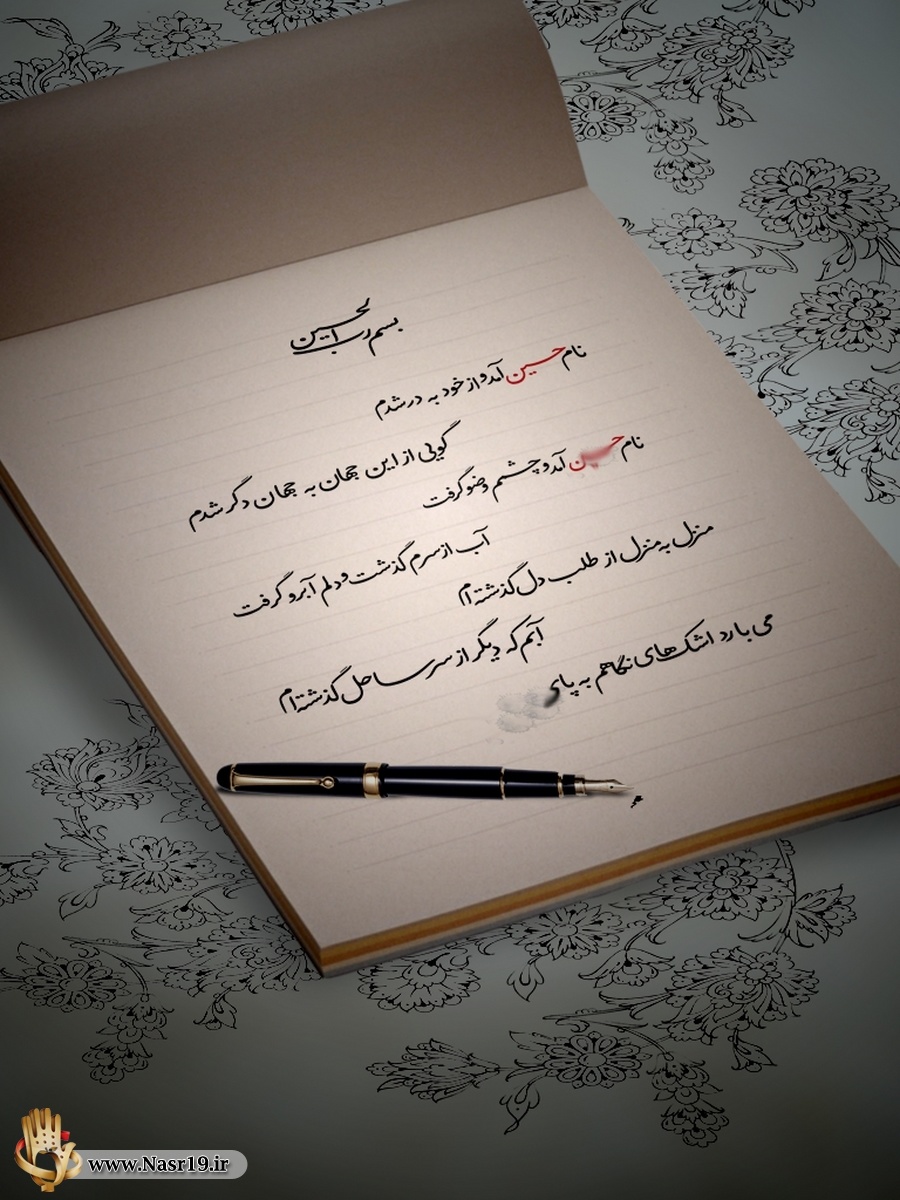 بسم رب الحسین
نام حسین آمد و از خود به در شدم
گویی از این جهان به جهان دگر شدم
نام حسین آمد و چشمم وضو گرفت
آب از سرم گذشت و دلم آبرو گرفت
منزل به منزل از طلب دل گذشته‌ام
آبم که دیگر از سر ساحل گذشته‌ام
می بارد اشک‌های نگاهم به پای
www.Nasr19.ir